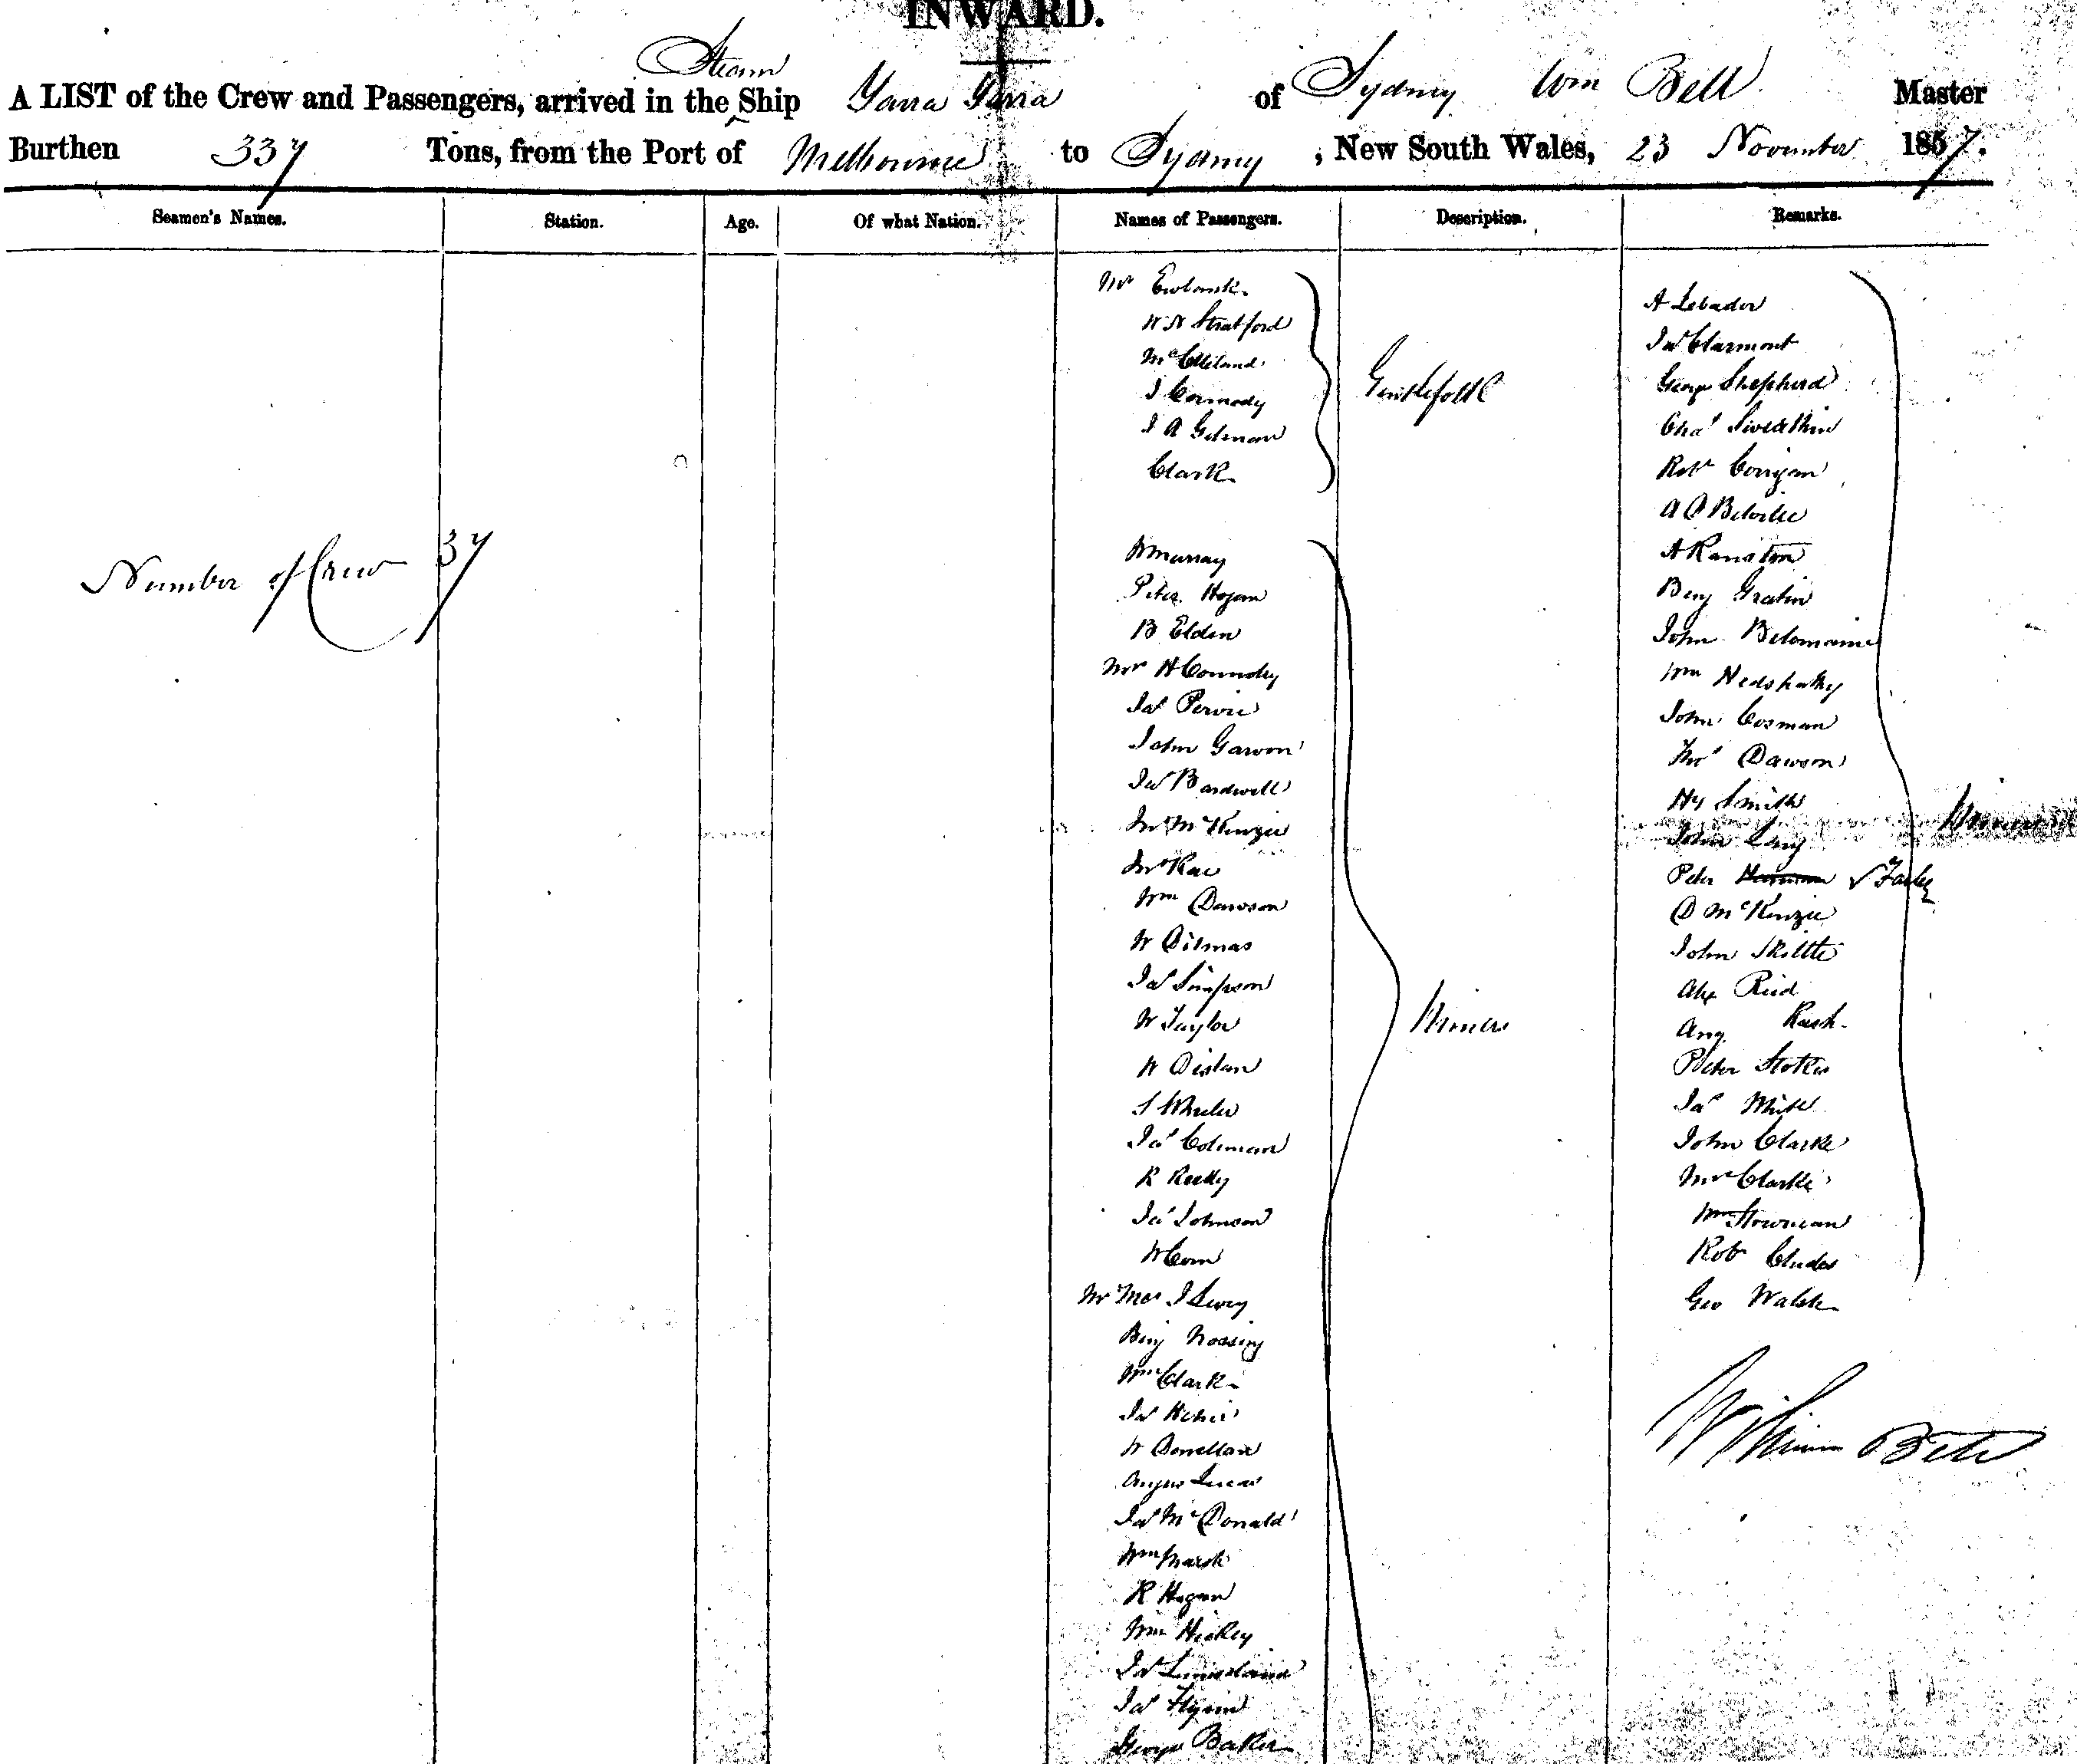 INWARD.
Steam
A LIST of the Crew and Passengers, arrived in the Ship Yarra Yarra of Sydney Wm Bell Master
Burthen 337 Tons, from the Port of Melbourne to Sydney, New South Wales, 23 November 1857.
Seamen's Names. Station. Age. Of what Nation. Names of Passengers. Description. Remarks.
Number of Crew 37
Mr Ewbank
W N Stratford
McClleland
J Cormody
J A Gilman
Clark
Gentlefolk
W Murray
Peter Hogan
B Elden
Mr H Connoley
Jas
John Garvon
Jas Bardwell
Jno McKenzie
Jno Rae
Wm Dawson
W Dismas
Jas Simpson
W Taylor
W Dislan
S Wheeler
Jas Coleman
R Reelly
Jas Johnson
W Corn
Mr Mrs J Levey
Benj
Wm Clark
Jas
W Donellan
Angus Lucas
Jas McDonald
Wm Marsh
R Hogan
Wm Hickey
Jas
Jas Flynn
George Baker
Miners
A Lebador
Jas Clarmont
George Shepherd
Chas
Robt Corrigan
A
A Ranston
Benj Gratin
John
Wm
John Cosman
Thos Dawson
Hy Smith
John Lang
Peter Farley
D McKenzie
John Skittle
Alex Reid
Ang Rush
Peter Stokes
Jas White
John Clarke
Mrs Clarke
Wm
Robt
Geo Walsh
Miners
William Bell